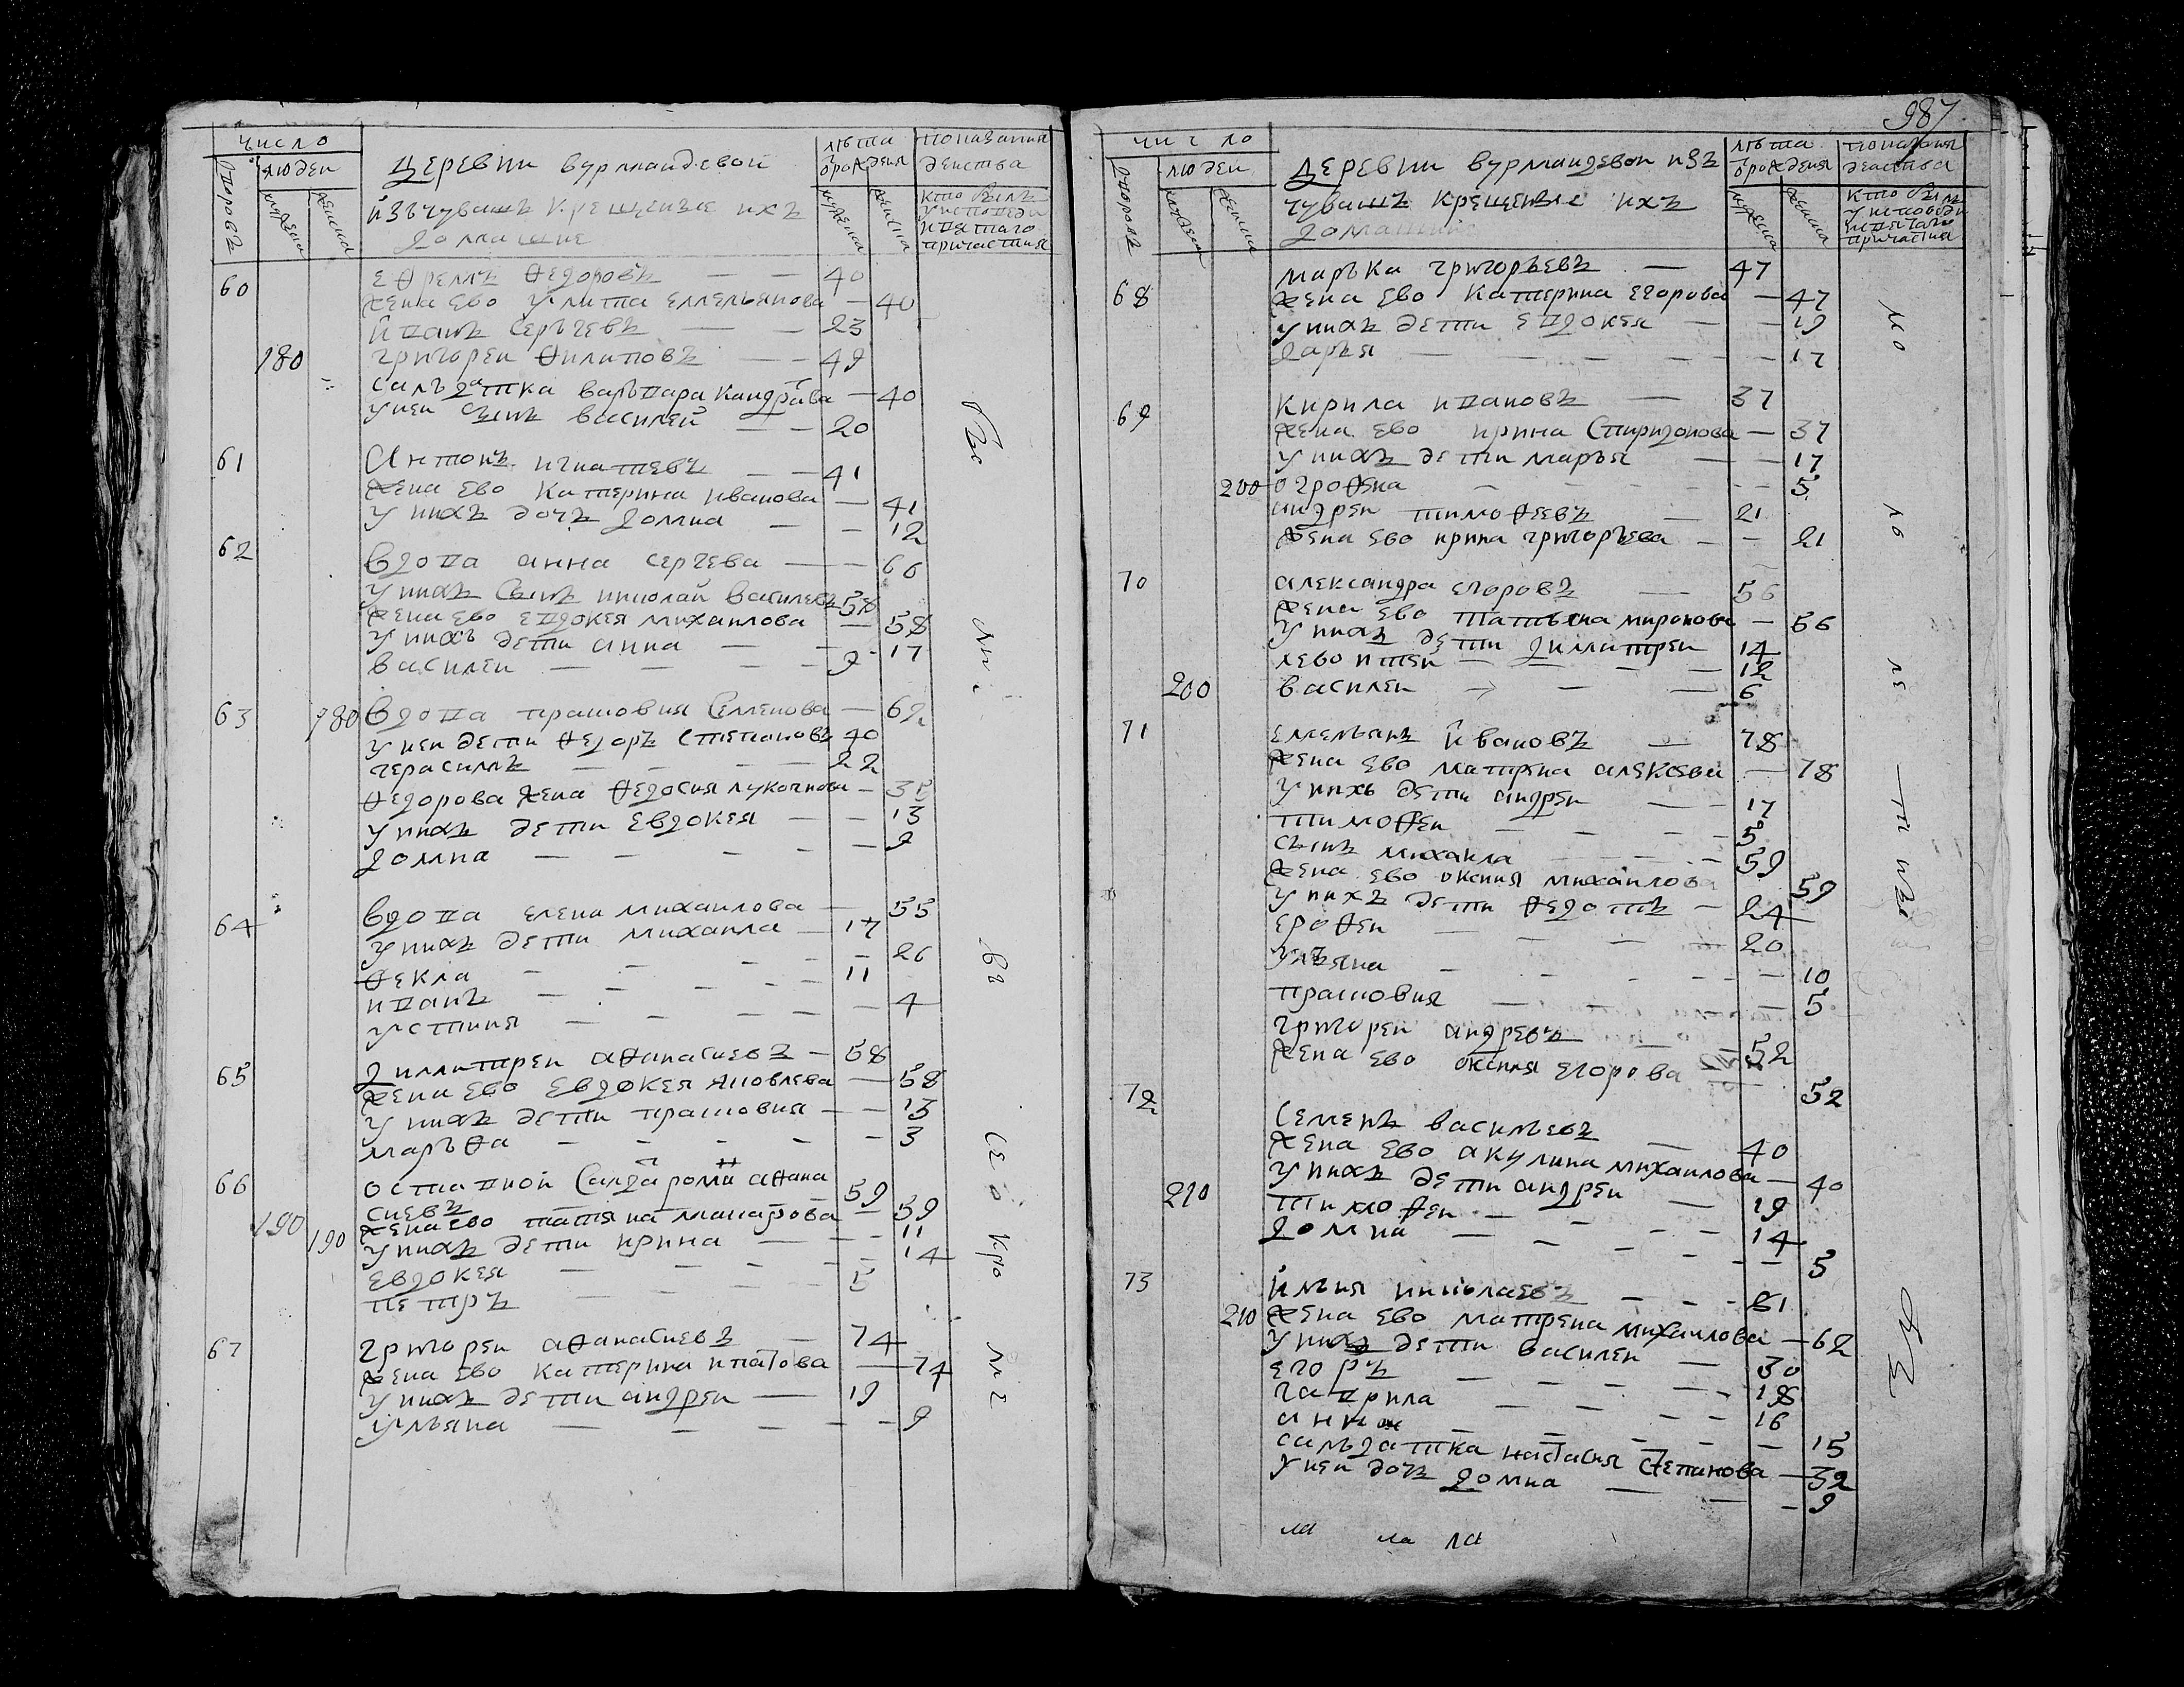 число
дворовъ
людеи
мужеска
женска
Деревни вурмандевой
изъ чувашъ крещеные ихъ
домашние
лета
от рождения
мужеска
женска
показания
действа
кто был
у исповеди
и святаго
причастия
60
ефремъ ѳедоровъ — — 40
жена ево улита еммельянова — 40
иванъ сергеевъ — — 23
180 григореи ѳилиповъ — — 49
салъдатка варъвара кандратева — 40
у неи сынъ василей — — 20
61
Антонъ игнатиевъ — — 41
жена ево катерина иванова — 41
у нихъ дочъ домна — — 12
62
вдова анна сергева — — 66
у нихъ сынъ николаи василевъ 58
жена ево евдокея михаилова — 58
у нихъ дети анна — — 17
василеи — — — 9
63 180 вдова прасковия семенова — 62
у неи дети ѳедоръ степановъ 40
герасимъ — — — 22
ѳедорова жена ѳедосия лукоянова — 35
у нихъ дети евдокея — — 13
домна — — — — 9
64
вдова елена михаилова — 55
у нихъ дети михаила — 17
ѳекла — — — — 26
иванъ — — — — 11
устиния — — — — 4
65
димитреи аѳанасиевъ — 58
жена ево евдокея яковлева — 58
у нихъ дети прасковия — — 13
маръѳа — — — — 3
66
оставной салдатъ роман аѳана
сиевъ 59
190 жена ево татяна макарова 59
190 у нихъ дети ирина — — 11
евдокея — — — 14
петръ — — — 5
67
григореи аѳанасиевъ — 74
жена ево катерина ипатова — 74
у нихъ дети андреи — 19
улъяна — — — — 9
нис
987
число
дворовъ
людеи
мужеска
женска
Деревни вурмандевои изъ
чувашъ крещеные ихъ
домашние
лета
от рождения
мужеска
женска
показания
действа
кто был
у исповеди
и святаго
причастия
68
маръка григоръевъ — 47
жена ево катерина егорова — 47
у нихъ дети евдокея — — 19
даръя — — — — 17
69
кирила ивановъ — 37
жена ево ирина спиридонова — 37
у нихъ дети маръя — — 17
200 огроѳена — — — — 5
андреи тимоѳеевъ — 21
жена ево ирина григоръева — — 21
70
александра егоровъ — 56
жена ево татъяна миронова — 56
у нихъ дети димитреи 14
левонтеи — — — — 12
200 василеи — — — 6
71
еммелъянъ ивановъ — 78
жена ево матрена алексева — 78
у нихъ дети андреи — — 17
тимоѳеи — — — — 5
сынъ михаила — — — 59
жена ево оксиния михаилова 59
у нихъ дети ѳедотъ — 24
ероѳеи — — — — 20
улъяна — — — — 10
прасковия — — — — 5
григореи андревъ — — 52
жена ево оксиния егорова — 52
72
семенъ василъевъ — 40
жена ево акулина михаилова — 40
210 у нихъ дети андреи — 19
тимоѳеи — — — — 14
домна — — — — 5
73
илъия николаевъ — — 61
210 жена ево матрена михаилова — 62
у нихъ дети василеи — 30
егоръ — — — — 18
гаврила — — — — 16
анна — — — — 15
салъдатка настасия степанова — 32
у неи дочъ домна — — 9
ла ла ла